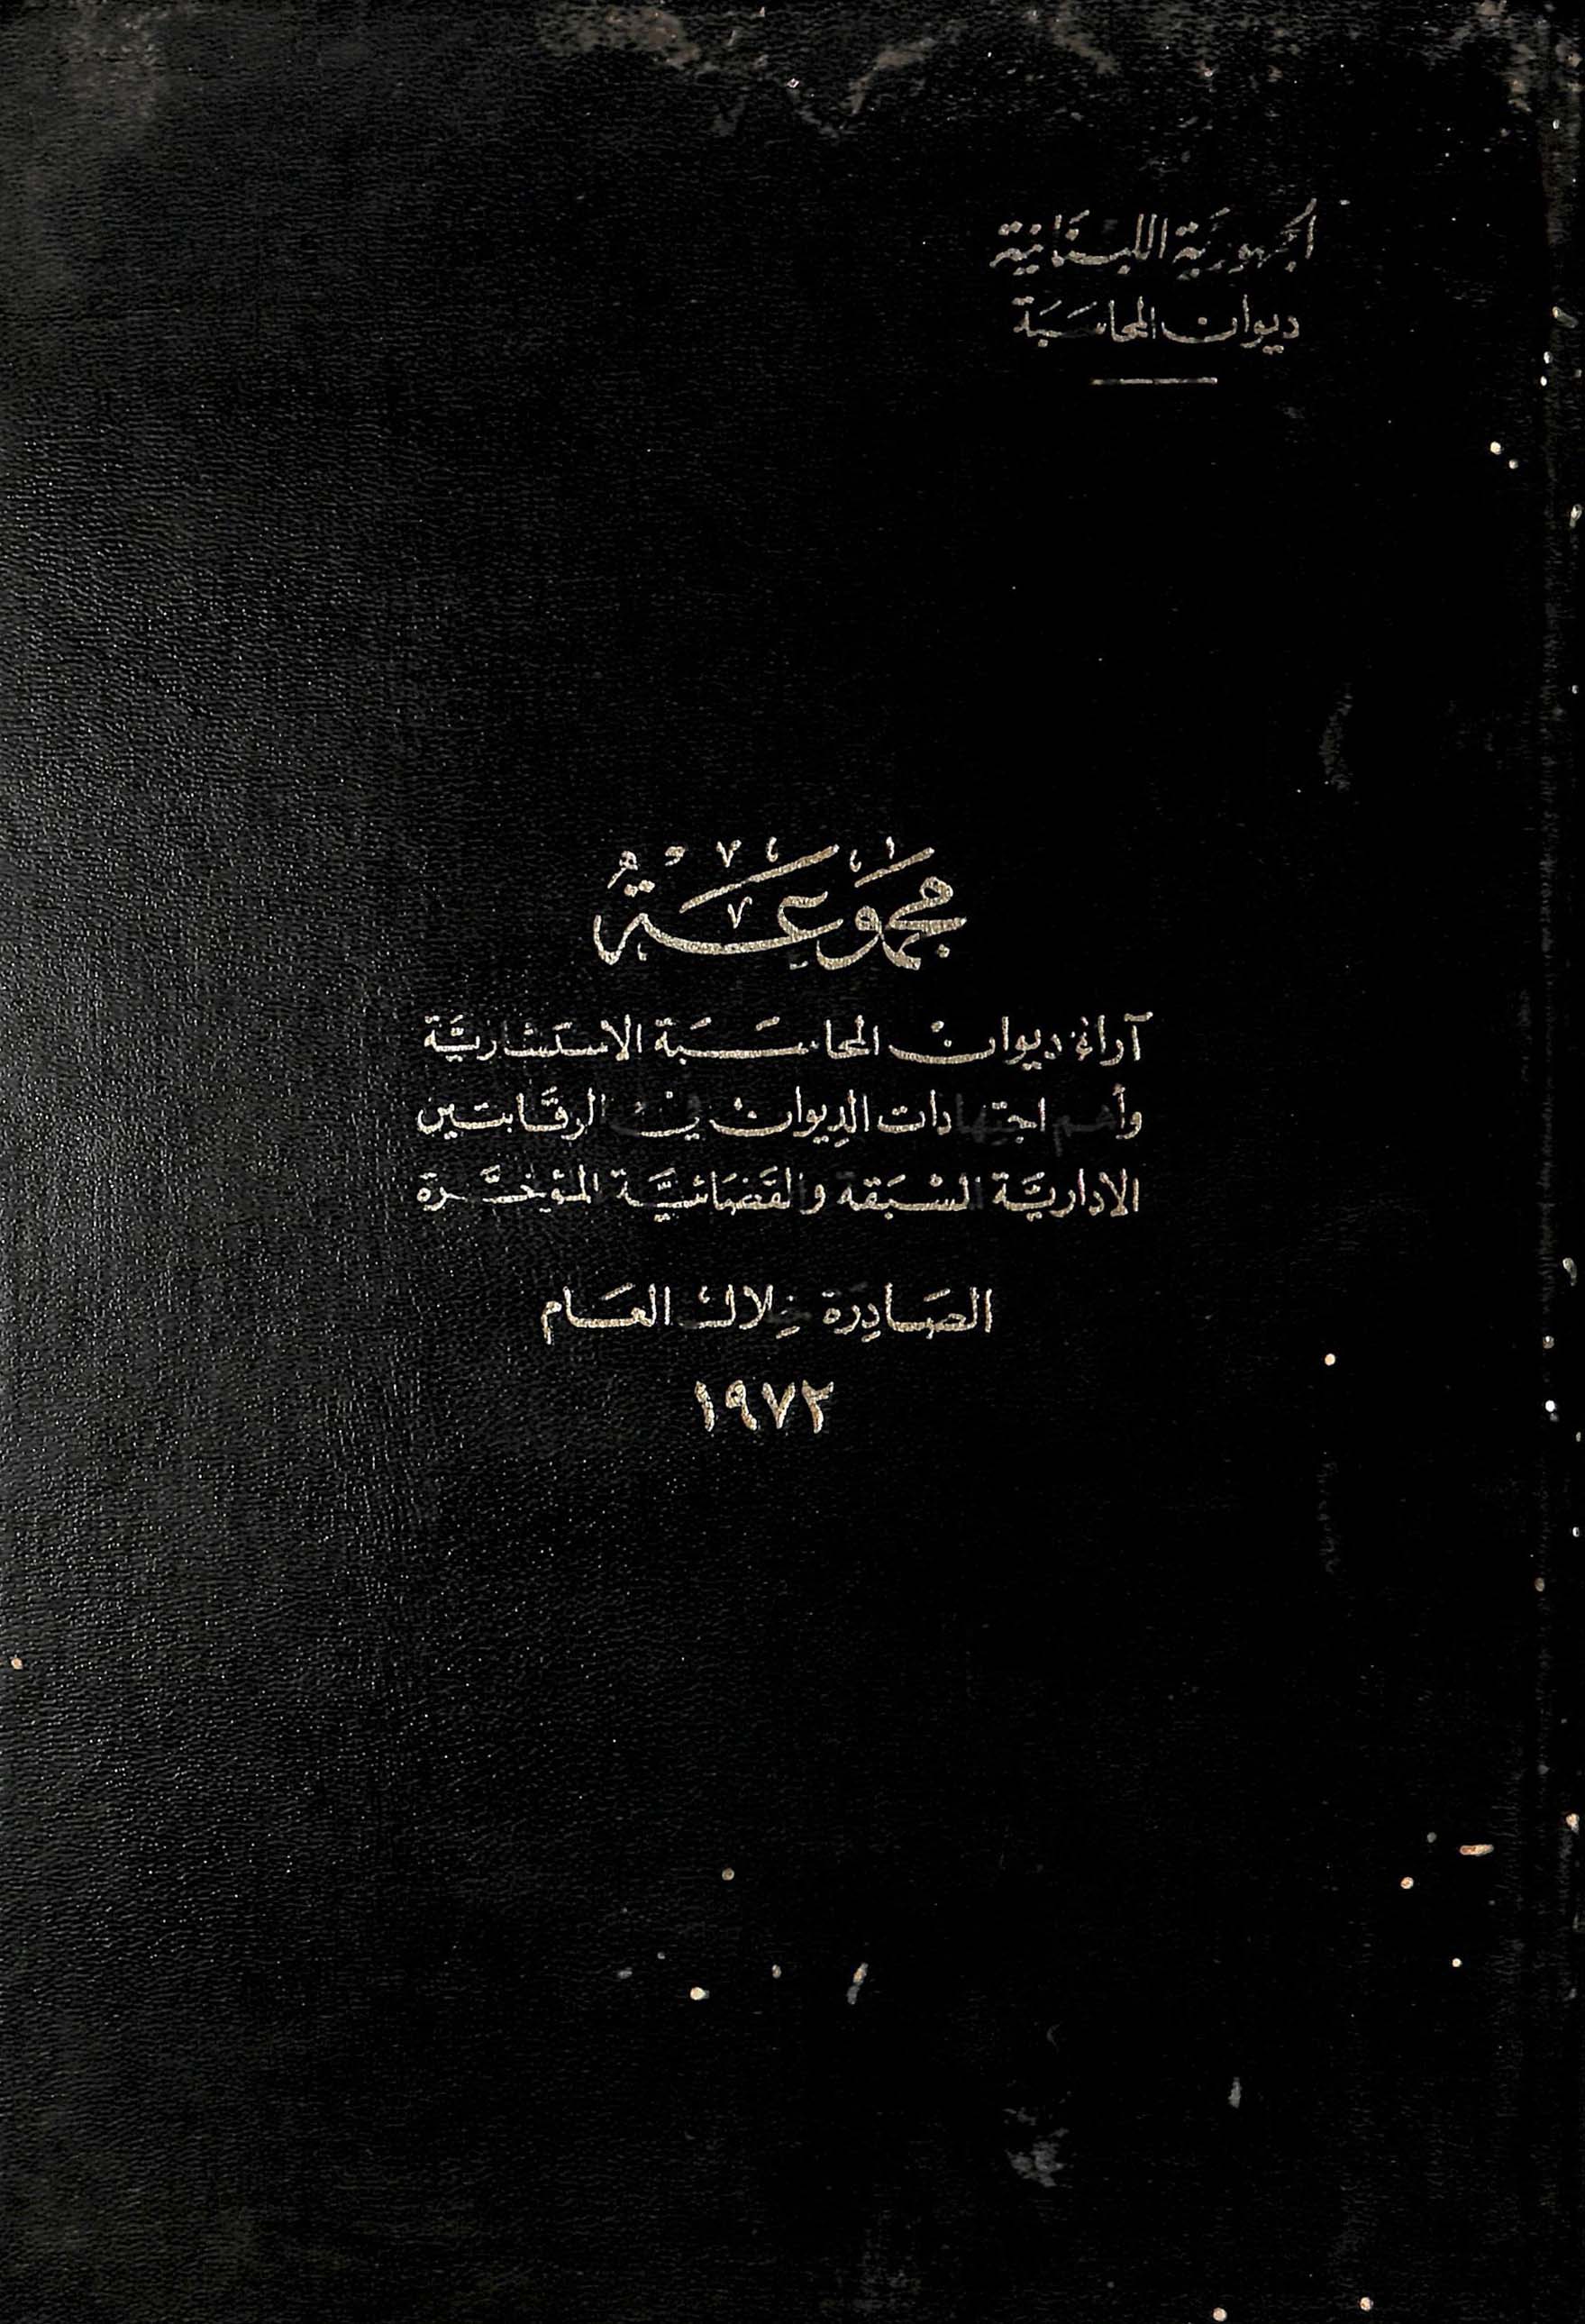 الجمهورية اللبنانية
ديوان المحاسبة
مجموعة
آراء ديوان المحاسبة الاستشارية
وأهم اجتهادات الديوان في الرقابتين
الادارية المسبقة والقضائية المؤخرة
الصادرة خلال العام
١٩٧٢